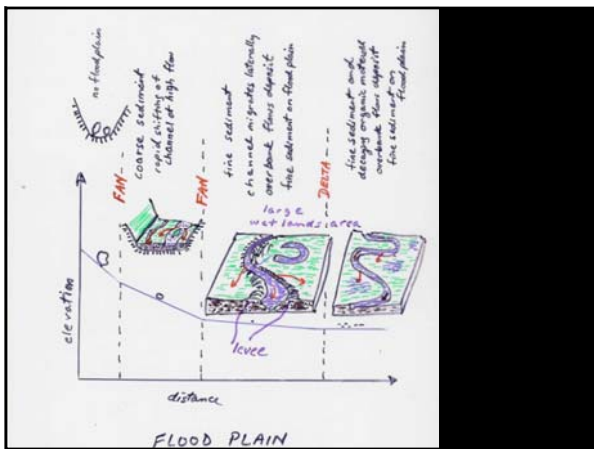 no floodplain
FAN
coarse sediment
rapid shifting of
channel at high flow
FAN
fine sediment
channel migrates laterally
overbank flows deposit
fine sediment on flood plain
DELTA
fine sediment and
decaying organic material
overbank flows deposit
fine sediment on
flood plain
large
wetlands area
levee
elevation
distance
FLOOD PLAIN